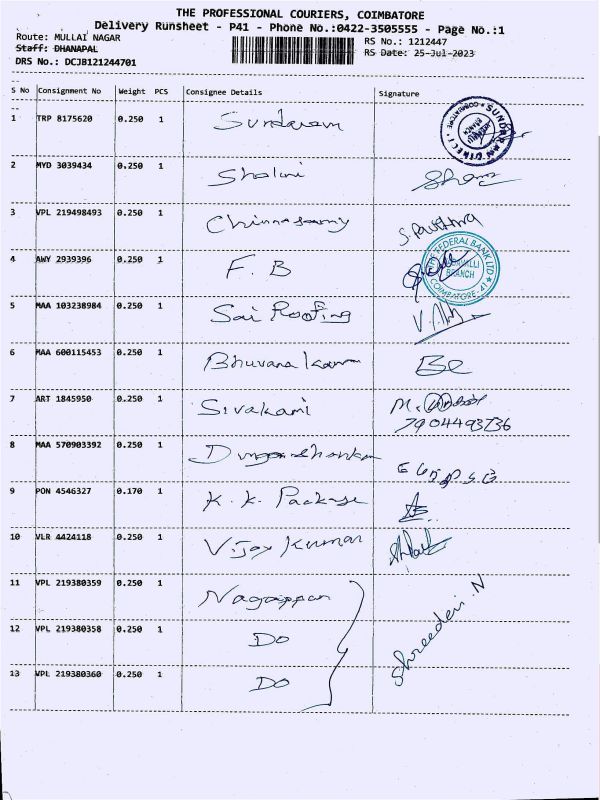 THE PROFESSIONAL COURIERS, COIMBATORE
Delivery Runsheet - P41 - Phone No.:0422-3505555 - Page No.:1
Route: MULLAI NAGAR
RS No.: 1212447
Staff: DHANAPAL
RS Date: 25-Jul-2023
DRS No.: DCJB121244701
S No Consignment No Weight PCS Consignee Details Signature
1 TRP 8175620 0.250 1 Sundaram
2 MYD 3039434 0.250 1 Shalini
3 VPL 219498493 0.250 1 Chinnasamy S. Pavithra
4 AWY 2939396 0.250 1 F. B THE FEDERAL BANK LTD BRANCH COIMBATORE - 41
5 MAA 103238984 0.250 1 Sai Roofing
6 MAA 600115453 0.250 1 Bhuvana
7 ART 1845950 0.250 1 Sivakami M.
8 MAA 570903392 0.250 1
9 PON 4546327 0.170 1 K. K. Package
10 VLR 4424118 0.250 1 Vijay Kumar
11 VPL 219380359 0.250 1 Nagappan Shreedevi. N
12 VPL 219380358 0.250 1 Do
13 VPL 219380360 0.250 1 Do